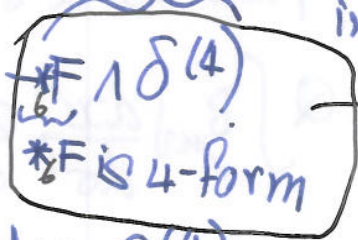 *₆F ∧ δ⁽⁴⁾
*₆F is 4-form